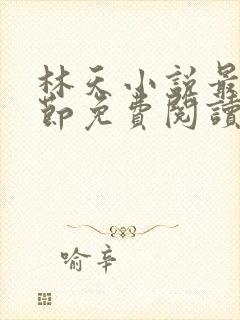 林天小說最
節免費閱讀
喻辛